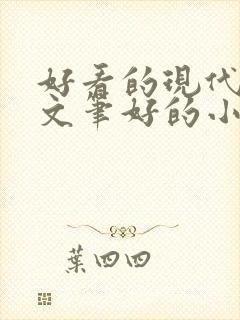 好看的現代
文筆好的小
葉四四